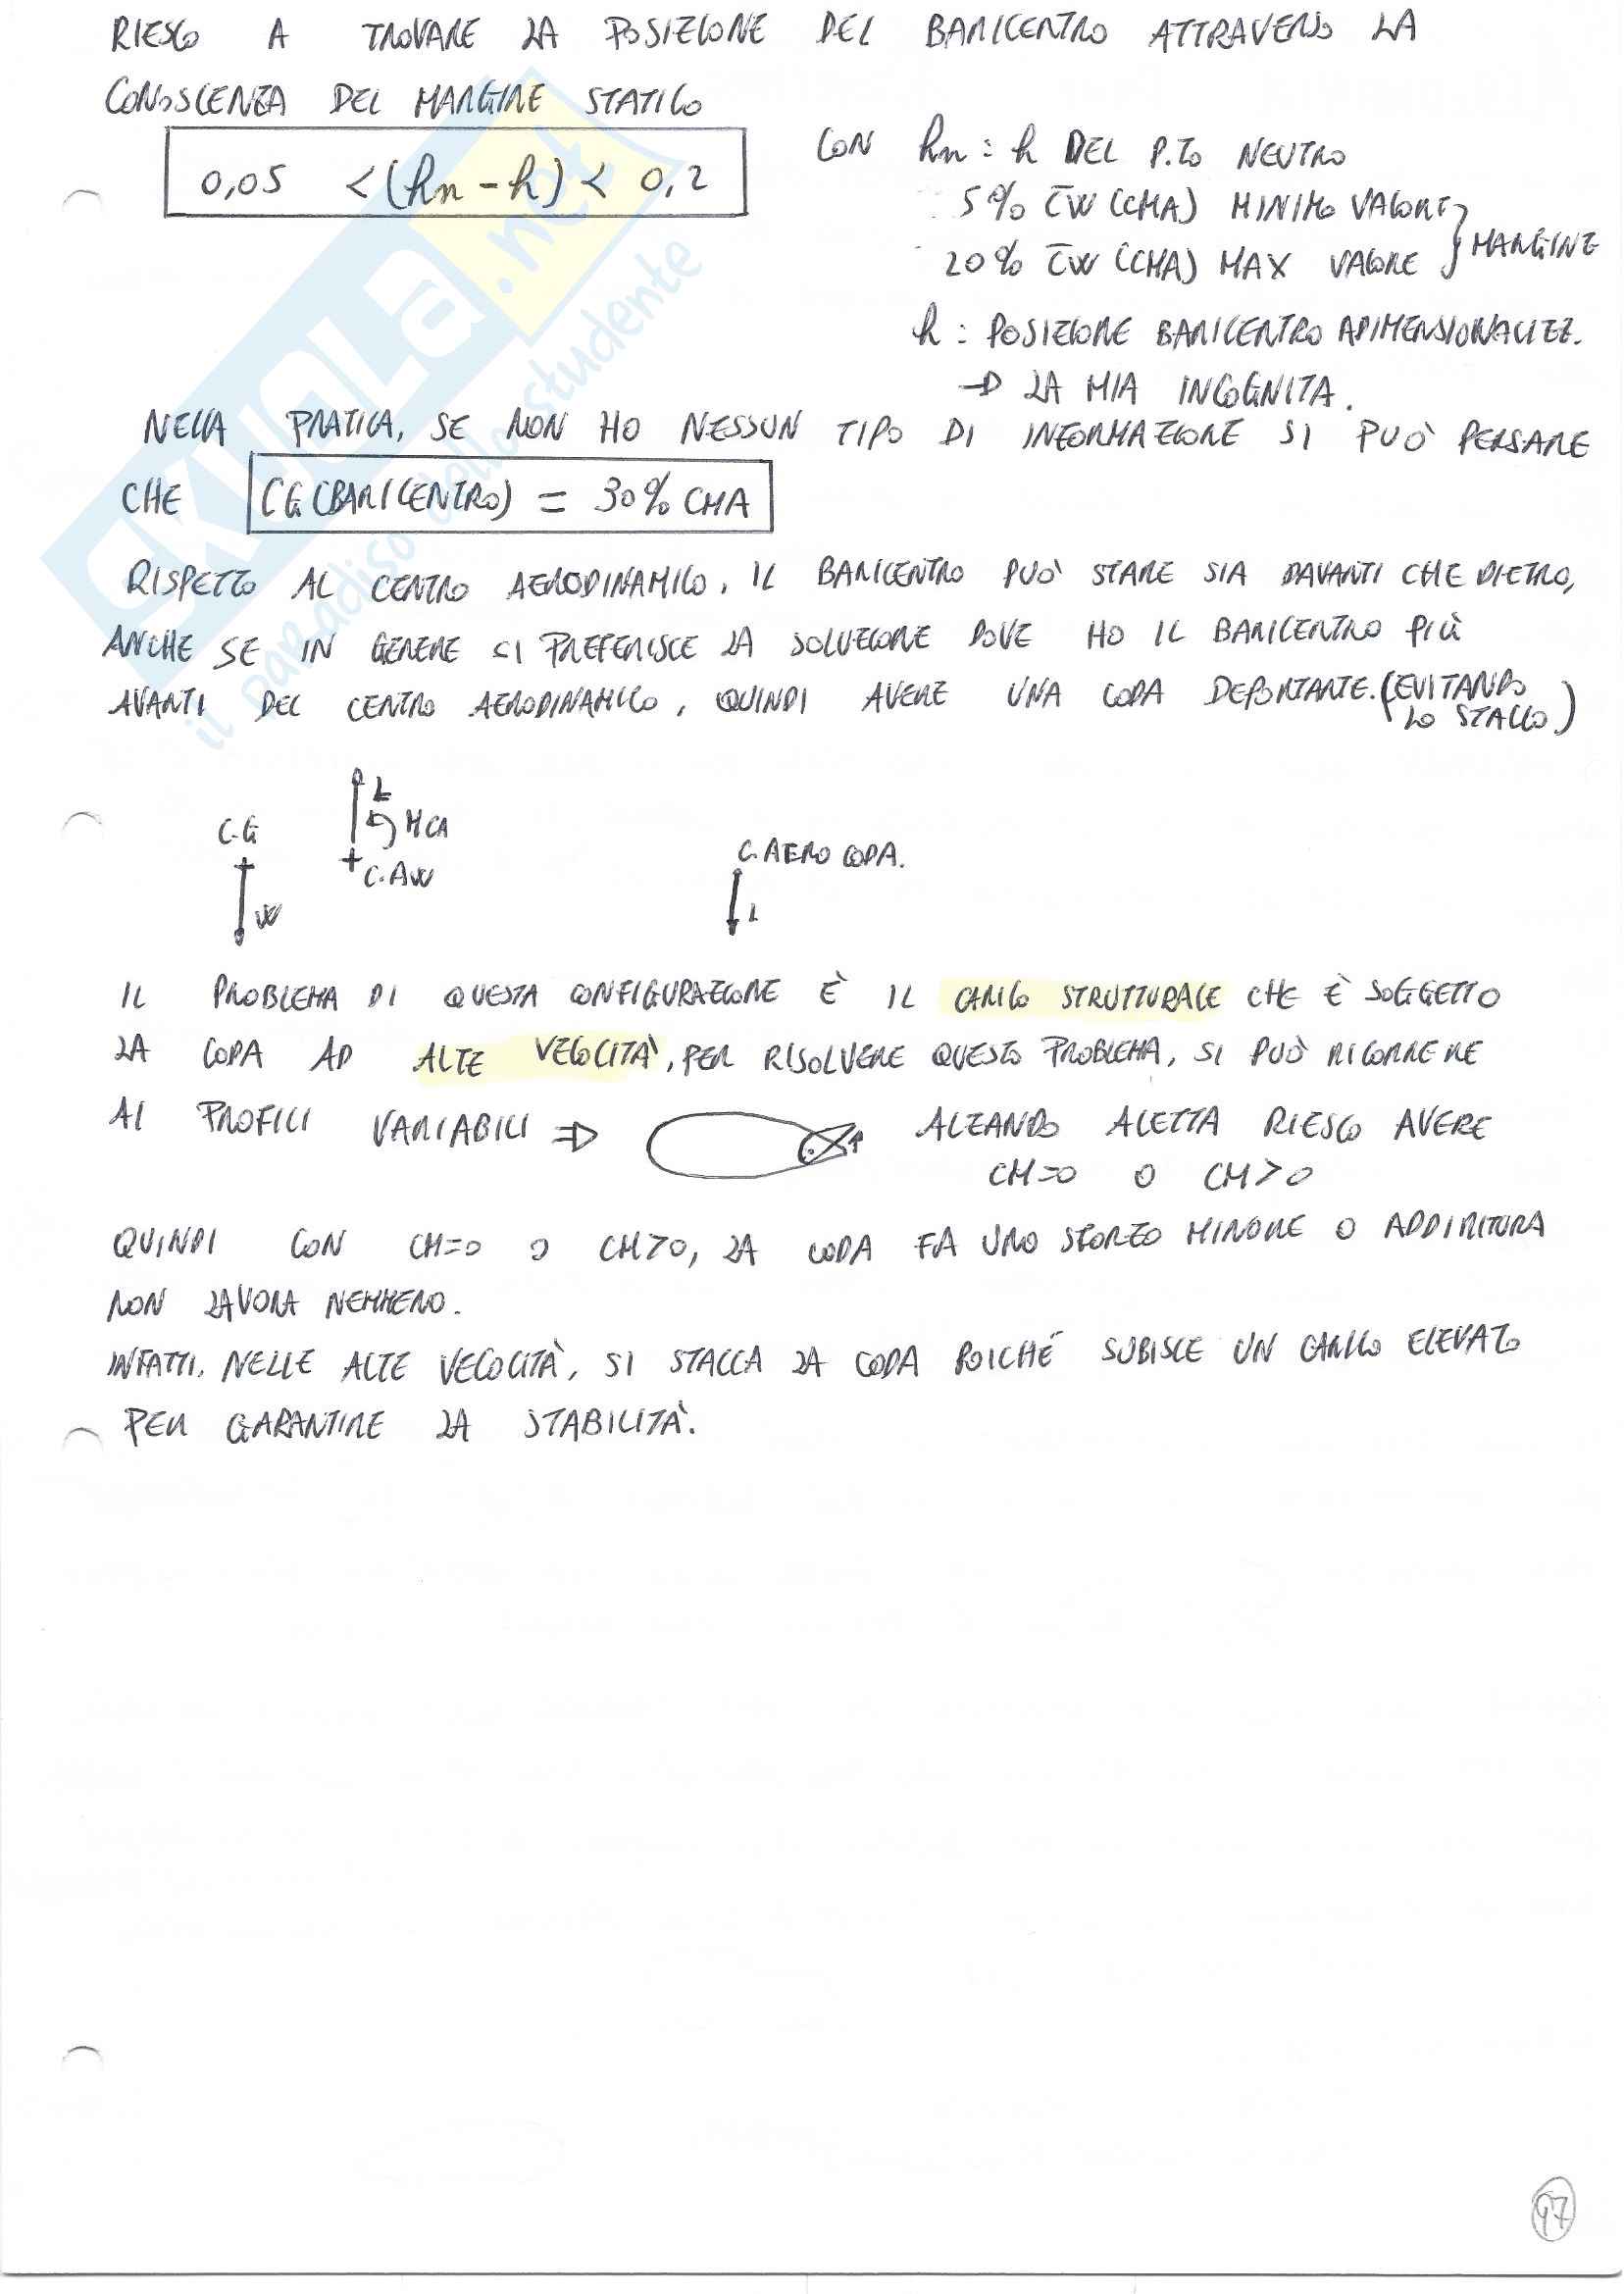 RIESCO A TROVARE LA POSIZIONE DEL BARICENTRO ATTRAVERSO LA
CONOSCENZA DEL MARGINE STATICO
0,05 < (hn - h) < 0,2
CON hn : h DEL P.TO NEUTRO
5% C̄W (CMA) MINIMO VALORE
20% C̄W (CMA) MAX VALORE } MARGINE
h : POSIZIONE BARICENTRO ADIMENSIONALIZZ.
→ LA MIA INCOGNITA.
NELLA PRATICA, SE NON HO NESSUN TIPO DI INFORMAZIONE SI PUÒ PENSARE
CHE CG (BARICENTRO) = 30% CMA
RISPETTO AL CENTRO AERODINAMICO, IL BARICENTRO PUÒ STARE SIA DAVANTI CHE DIETRO,
ANCHE SE IN GENERE SI PREFERISCE LA SOLUZIONE DOVE HO IL BARICENTRO PIÙ
AVANTI DEL CENTRO AERODINAMICO, QUINDI AVERE UNA CODA DEPORTANTE. (EVITANDO
LO STALLO.)
L
C.G MCA
C. AERO CODA.
+ C.AW
W L
IL PROBLEMA DI QUESTA CONFIGURAZIONE È IL CARICO STRUTTURALE CHE È SOGGETTO
LA CODA AD ALTE VELOCITÀ, PER RISOLVERE QUESTO PROBLEMA, SI PUÒ RICORRERE
AI PROFILI VARIABILI ⇒ ALZANDO ALETTA RIESCO AVERE
CM=0 O CM>0
QUINDI CON CM=0 O CM>0, LA CODA FA UNO SFORZO MINORE O ADDIRITURA
NON LAVORA NEMMENO.
INFATTI, NELLE ALTE VELOCITÀ, SI STACCA LA CODA POICHÉ SUBISCE UN CARICO ELEVATO
PER GARANTIRE LA STABILITÀ.
97
SKUOLA.net
il paradiso dello studente